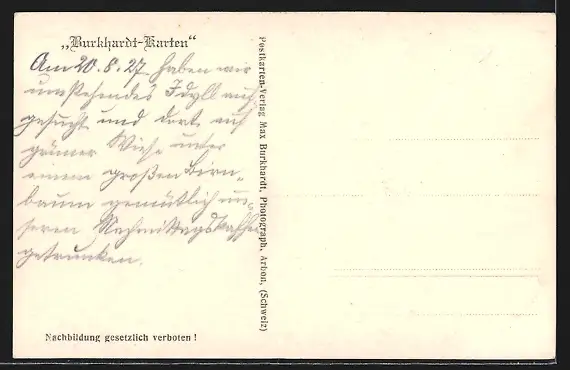 „Burkhardt-Karten“
Am 20.8.27. haben wir
umstehendes Idyll auf-
gesucht und dort auf
grüner Wiese unter
einem großen Birn-
baum gemütlich un-
seren Nachmittagskaffee
getrunken.
Nachbildung gesetzlich verboten!
Postkarten-Verlag Max Burkhardt, Photograph, Arbon, (Schweiz)